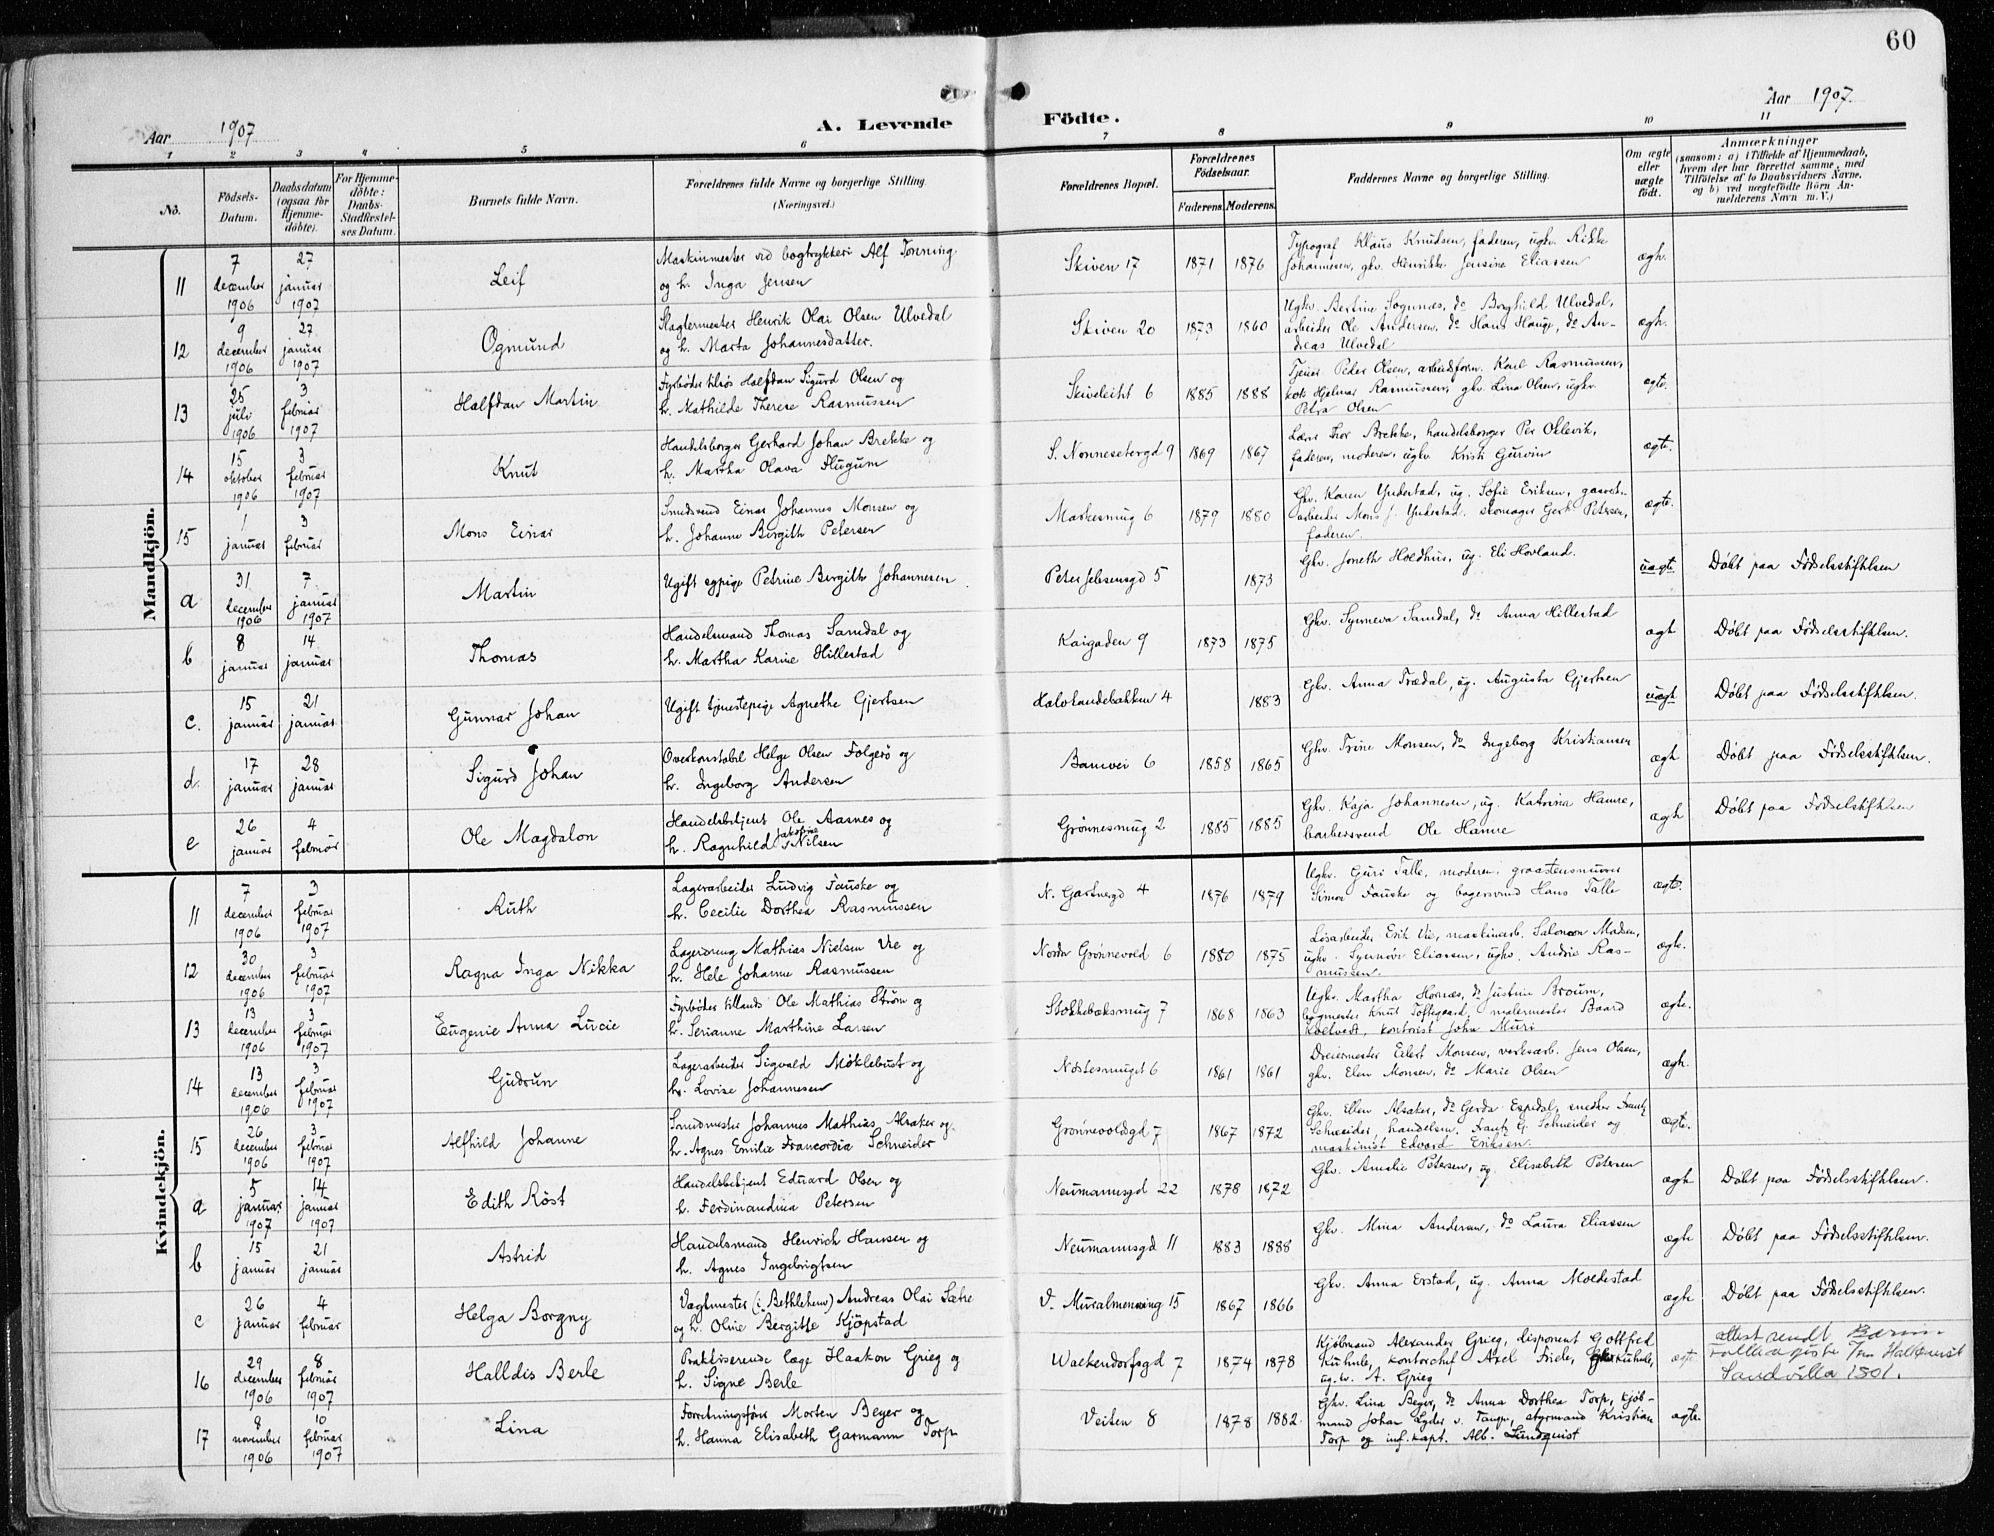 60
Aar 1907
A. Levende Födte.
Aar 1907.
1 2 3 4 5 6 7 8 9 10 11
No.
Födsels-Datum.
Daabsdatum (ogsaa for Hjemmedöbte).
For Hjemmedöbte: Daabs-Stadfæstelses Datum.
Barnets fulde Navn.
Forældrenes fulde Navne og borgerlige Stilling. (Næringsvei.)
Forældrenes Bopæl.
Forældrenes Födselsaar.
Faderens. Moderens.
Faddernes Navne og borgerlige Stilling.
Om ægte eller uægte födt.
Anmærkninger
(saasom: a) i Tilfælde af Hjemmedaab, hvem der har forrettet samme, med Tilföielse af to Daabsvidners Navne, og b) ved uægtefödte Börn Anmelderens Navn m. V.)
Mandkjön.
11 7 december 1906 27 januar 1907 Leif
Maskinmester ved bogtrykkeri Alf Tonning
og h. Inga Jensen
Skiven 17 1871 1876
Typograf Klaus Knudsen, faderen, ugkv. Rikke
Johannesen, gkv. Henrikke Jensine Eliassen
ægte.
12 9 december 1906 27 januar 1907 Ogmund
Slagtermester Henrik Olai Olsen Ulvedal
og h. Marta Johannesdatter.
Skiven 20 1873 1860
Ugkv. Bertine Sognnæs, do Borghild Ulvedal,
arbeider Ole Andersen, do Hans Hauge, do An-
dreas Ulvedal
ægte.
13 25 juli 1906 3 februar 1907 Halfdan Martin
Fyrbøder tilsjøs Halfdan Sigurd Olsen og
h. Mathilde Therese Rasmussen
Skiveleiht 6 1885 1888
Tjener Peder Olsen, arbeidform. Karl Rasmussen,
kok Hjelmar Rasmussen, gkv. Lina Olsen, ugkv.
Petra Olsen
ægte.
14 15 oktober 1906 3 februar 1907 Knut
Handelsborger Gerhard Johan Brekke og
h. Martha Olava Flugum
S. Nonnesetergd 9 1869 1867
Lærer Thor Brekke, handelsborger Per Oklevik,
faderen, moderen, ugkv. Kristi Gurvin
ægte.
15 1 januar 3 februar Mons Einar
Smedsvend Einar Johannes Monsen og
h. Johanne Bergith Petersen
Markesmug 6 1879 1880
Gkv. Karen Yndestad, ug. Sofie Eriksen, gasverks-
arbeider Mons J. Yndestad, skomager Gerh. Petersen,
faderen.
ægte.
a 31 december 1906 7 januar 1907 Martin
Ugift sypige Petrine Bergith Johannesen
Peter Jebsensgd 5 1873
Gkv. Joneth Holdhus, ug. Eli Hovland.
uægte Døbt paa Fødselsstiftelsen
b 8 januar 14 januar Thomas
Handelsmand Thomas Samdal og
h. Martha Karine Hillestad
Kaigaden 9 1873 1875
Gkv. Synneva Samdal, do Anna Hillestad
ægte Døbt paa Fødselsstiftelsen.
c. 15 januar 21 januar Gunnar Johan
Ugift tjenestepige Agnethe Gjertsen
Halvkandebakken 4 1883
Gkv. Anna Trædal, ug. Augusta Gjertsen
uægte Døbt paa Fødselsstiftelsen.
d. 17 januar 28 januar Sigurd Johan
Overkonstabel Helge Olsen Folgerø og
h. Ingeborg Andersen
Banevei 6 1858 1865
Gkv. Trine Monsen, do Ingeborg Kristiansen
ægte Døbt paa Fødselsstiftelsen.
e 26 januar 4 februar Ole Magdalon
Handelsbetjent Ole Aasnes og
h. Ragnhild Jakobine Nilsen
Grønnesmug 2 1885 1885
Gkv. Kaja Johannesen, ug. Katrina Hamre,
barbersvend Ole Hamre
ægte Døbt paa Fødselsstiftelsen
Kvindekjön.
11 7 december 1906 3 februar 1907 Ruth
Lagerarbeider Ludvig Fauske og
h. Cecilie Dorthea Rasmussen
N. Gartnergd 4 1876 1879
Ugkv. Guri Talle, moderen, graastensmurer
Simon Fauske og bagersvend Hans Talle
ægte.
12 30 december 1906 3 februar 1907 Ragna Inga Nikka
Lagerdreng Mathias Nielsen Vie og
h. Hele Johanne Rasmussen
Nordr Grønnevold 6 1880 1875
Løsarbeider Erik Vie, maskinarb. Salomon Madsen,
ugkv. Synnøve Eliassen, ugkv. Andrie Ras-
mussen.
ægte.
13 13 december 1906 3 februar 1907 Eugenie Anna Lucie
Fyrbøder tillands Ole Mathias Strøm og
h. Serianne Marthine Larsen
Stokkebæksmug 7 1868 1863
Ugkv. Martha Hornæs, do Justine Broum,
bygmester Knut Toftegaard, malermester Baard
Koltvedt, kontorist John Muri
ægte.
14 13 december 1906 3 februar 1907 Gudrun
Lagerarbeider Sigvald Møklebust og
h. Lovise Johannesen
Nøstesmuget 6 1861 1861
Dreiermester Eilert Monsen, verksarb. Jens Olsen,
gkv. Elen Monsen, do Marie Olsen
ægte.
15 26 december 1906 3 februar 1907 Alfhild Johanne
Smedmester Johannes Mathias Alsaker og
h. Agnes Emilie Francordia Schneider
Grønnevoldsgd 7 1867 1872
Gkv. Ellen Alsaker, do Gerda Espedal, snedker Frantz
Schneider, handelsm. Frantz G. Schneider og
maskinist Edvard Eriksen.
ægte.
a 5 januar 1907 14 januar 1907 Edith Røst
Handelsbetjent Eduard Olsen og
h. Ferdinandina Petersen
Neumannsgd 22 1878 1872
Gkv. Amalie Petersen, ug. Elisabeth Petersen
ægte Døbt paa Fødselsstiftelsen.
b 15 januar 21 januar Astrid
Handelsmand Henrich Hansen og
h. Agnes Ingebrigtsen
Neumannsgd 11 1883 1888
Gkv. Mina Andersen, do Laura Eliassen
ægte Døbt paa Fødselsstiftelsen.
c 26 januar 4 februar Helga Borgny
Vagtmester (i Bethlehem) Andreas Olai Sætre
og h. Oline Bergitte Kjöpstad
V. Muralmenning 15 1867 1866
Gkv. Anna Erstad, ug. Anna Moldestad
ægte Døbt paa Fødselsstiftelsen.
16 29 december 1906 8 februar 1907 Halldis Berle
Praktiserende læge Haakon Grieg og
h. Signe Berle
Walkendorfsgd 7 1874 1878
Kjøbmand Alexander Grieg, disponent Gottfred
Kuhnle, kontorchef Axel Friele, Kuhnle,
ug.kv. A. Grieg
ægte attest sendt
Sandvilla 1501.
17 8 november 1906 10 februar 1907 Lina
Forretningsfører Morten Beyer og
h. Hanna Elisabeth Garmann Torp
Veiten 8 1878 1882
Gkv. Lina Beyer, do Anna Dorthea Torp, kjøb-
mand Johan Lyder v. Tangen, styrmand Kristian
Torp og inf. kapt. Alb. Lundquist
ægte.